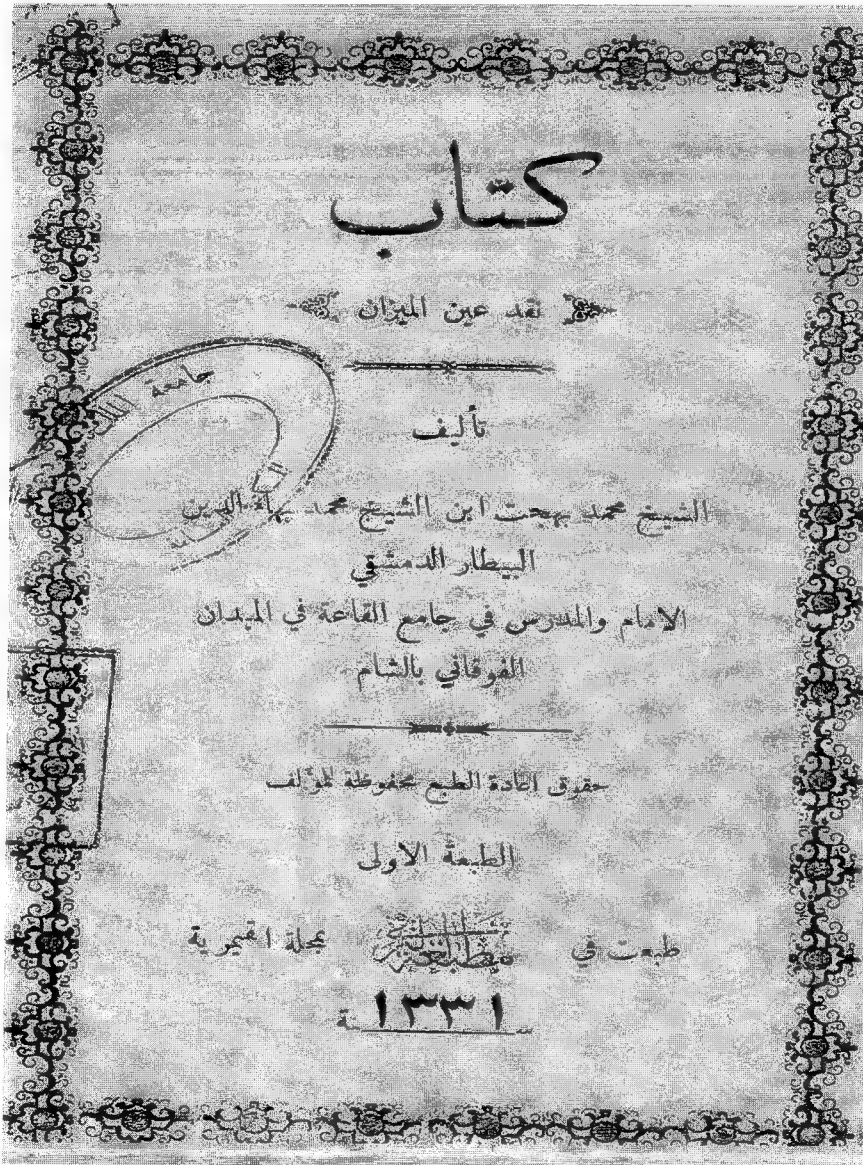 كتاب
نقد عين الميزان
تأليف
الشيخ محمد بهجت ابن الشيخ محمد بهاء الدين
البيطار الدمشقي
الامام والمدرس في جامع القاعة في الميدان
الفوقاني بالشام
حقوق اعادة الطبع محفوظة للمؤلف
الطبعة الاولى
طبعت في بمحلة القيمرية
سنة ١٣٣١
جامعة الملك